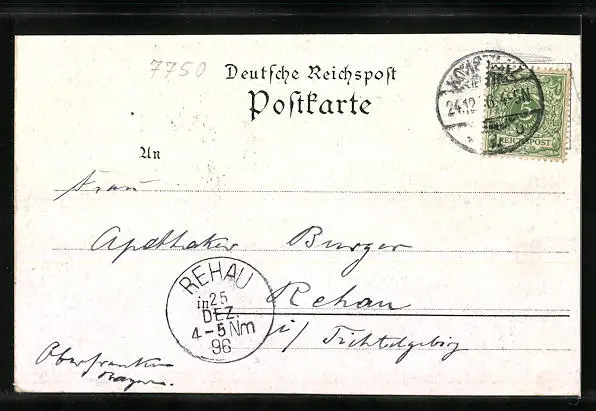 7750
Deutsche Reichspost
Postkarte
KONSTANZ
24.12.96.4-5N
5
REICHSPOST
An
Frau
Apotheker Burger
REHAU
in 25
DEZ.
4-5 Nm
96
Rehau
i/ Fichtelgebirg
Oberfranken
Bayern.